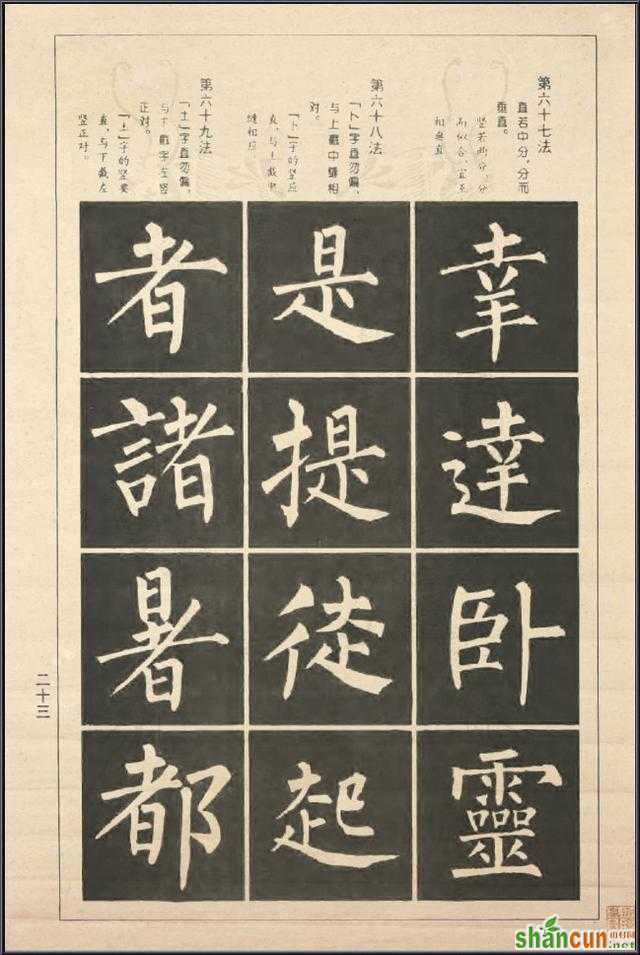 第六十七法
直若中分,分而
垂直。
竖若两分,分
而似合,宜至
相垂直
幸
達
卧
靈
第六十八法
「卜」字直勿偏,
与上截中缝相
对。
「卜」字的竖应
直,与上截中
缝相应
是
提
徒
起
第六十九法
「土」字直勿偏,
与下截字左竖
正对。
「土」字的竖要
直,与下截左
竖正对。
者
諸
暑
都
二十三
shancun
.net